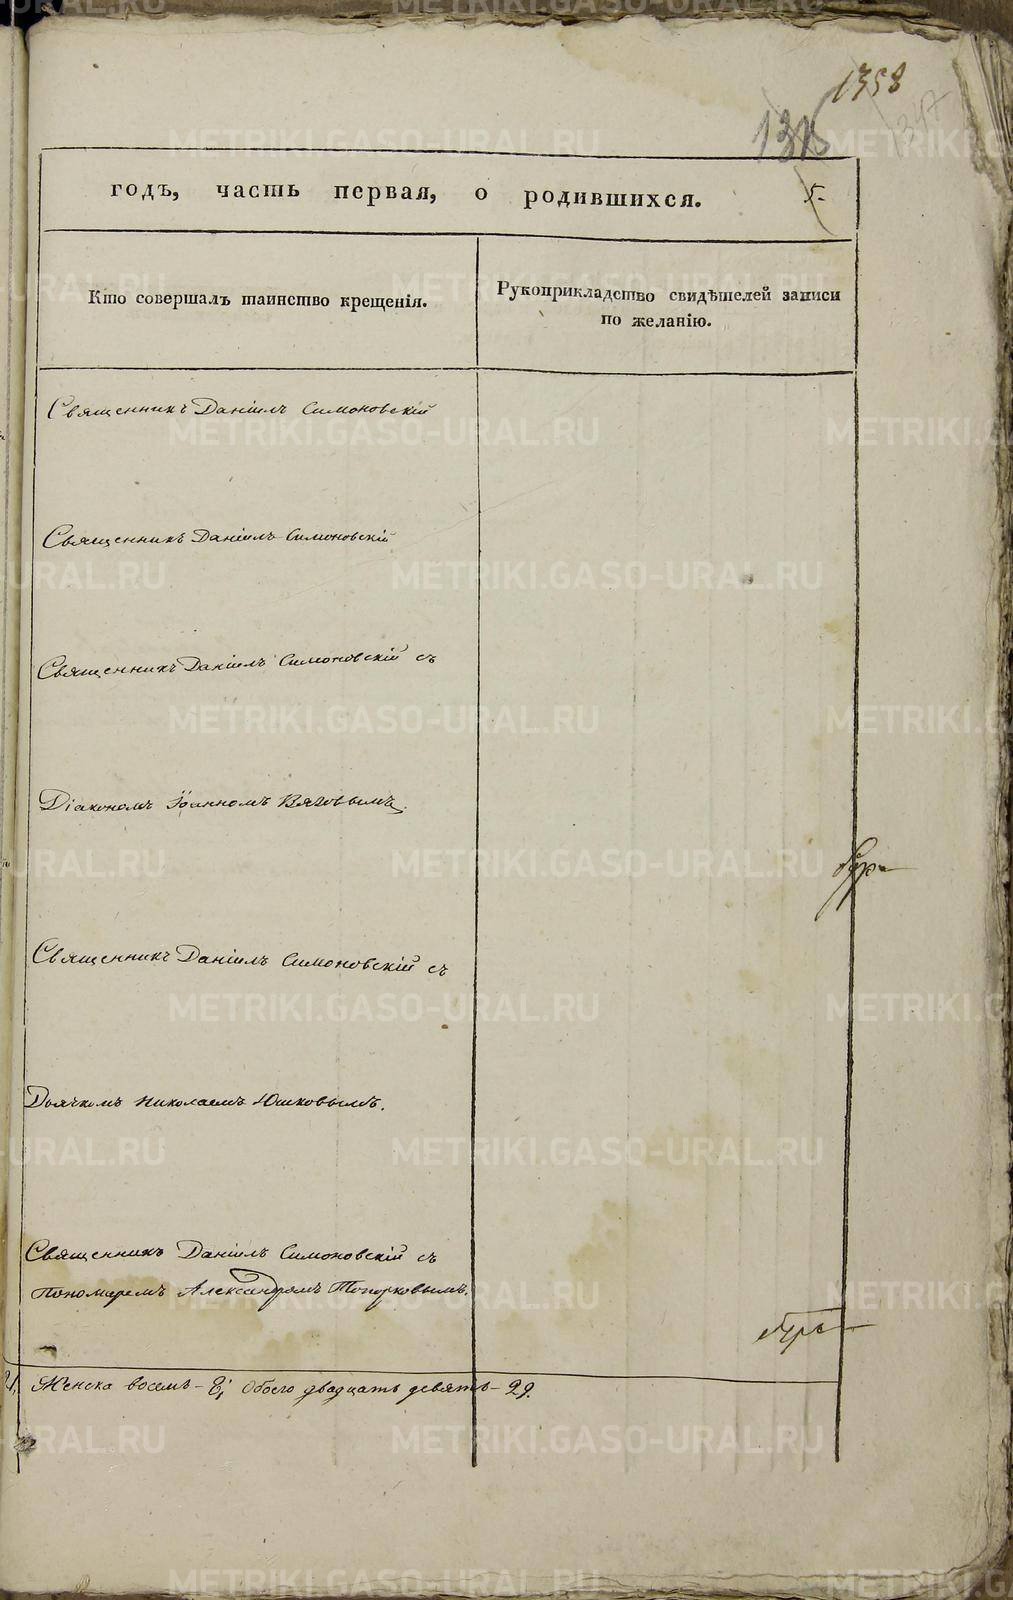 1358
годъ, часть первая, о родившихся.
5.
Кто совершалъ таинство крещенія.
Рукоприкладство свидѣтелей записи
по желанію.
Священникъ Даніилъ Симоновскій
Священникъ Даніилъ Симоновскій
Священникъ Даніилъ Симоновскій съ
Діакономъ Іоанномъ Вяловымъ.
Священникъ Даніилъ Симоновскій съ
Дьячкомъ Николаемъ Юшковымъ.
Священникъ Даніилъ Симоновскій съ
пономаремъ Александромъ Топорковымъ.
21, Женска восемь – 8; Обоего двадцать девять – 29.
METRIKI.GASO-URAL.RU